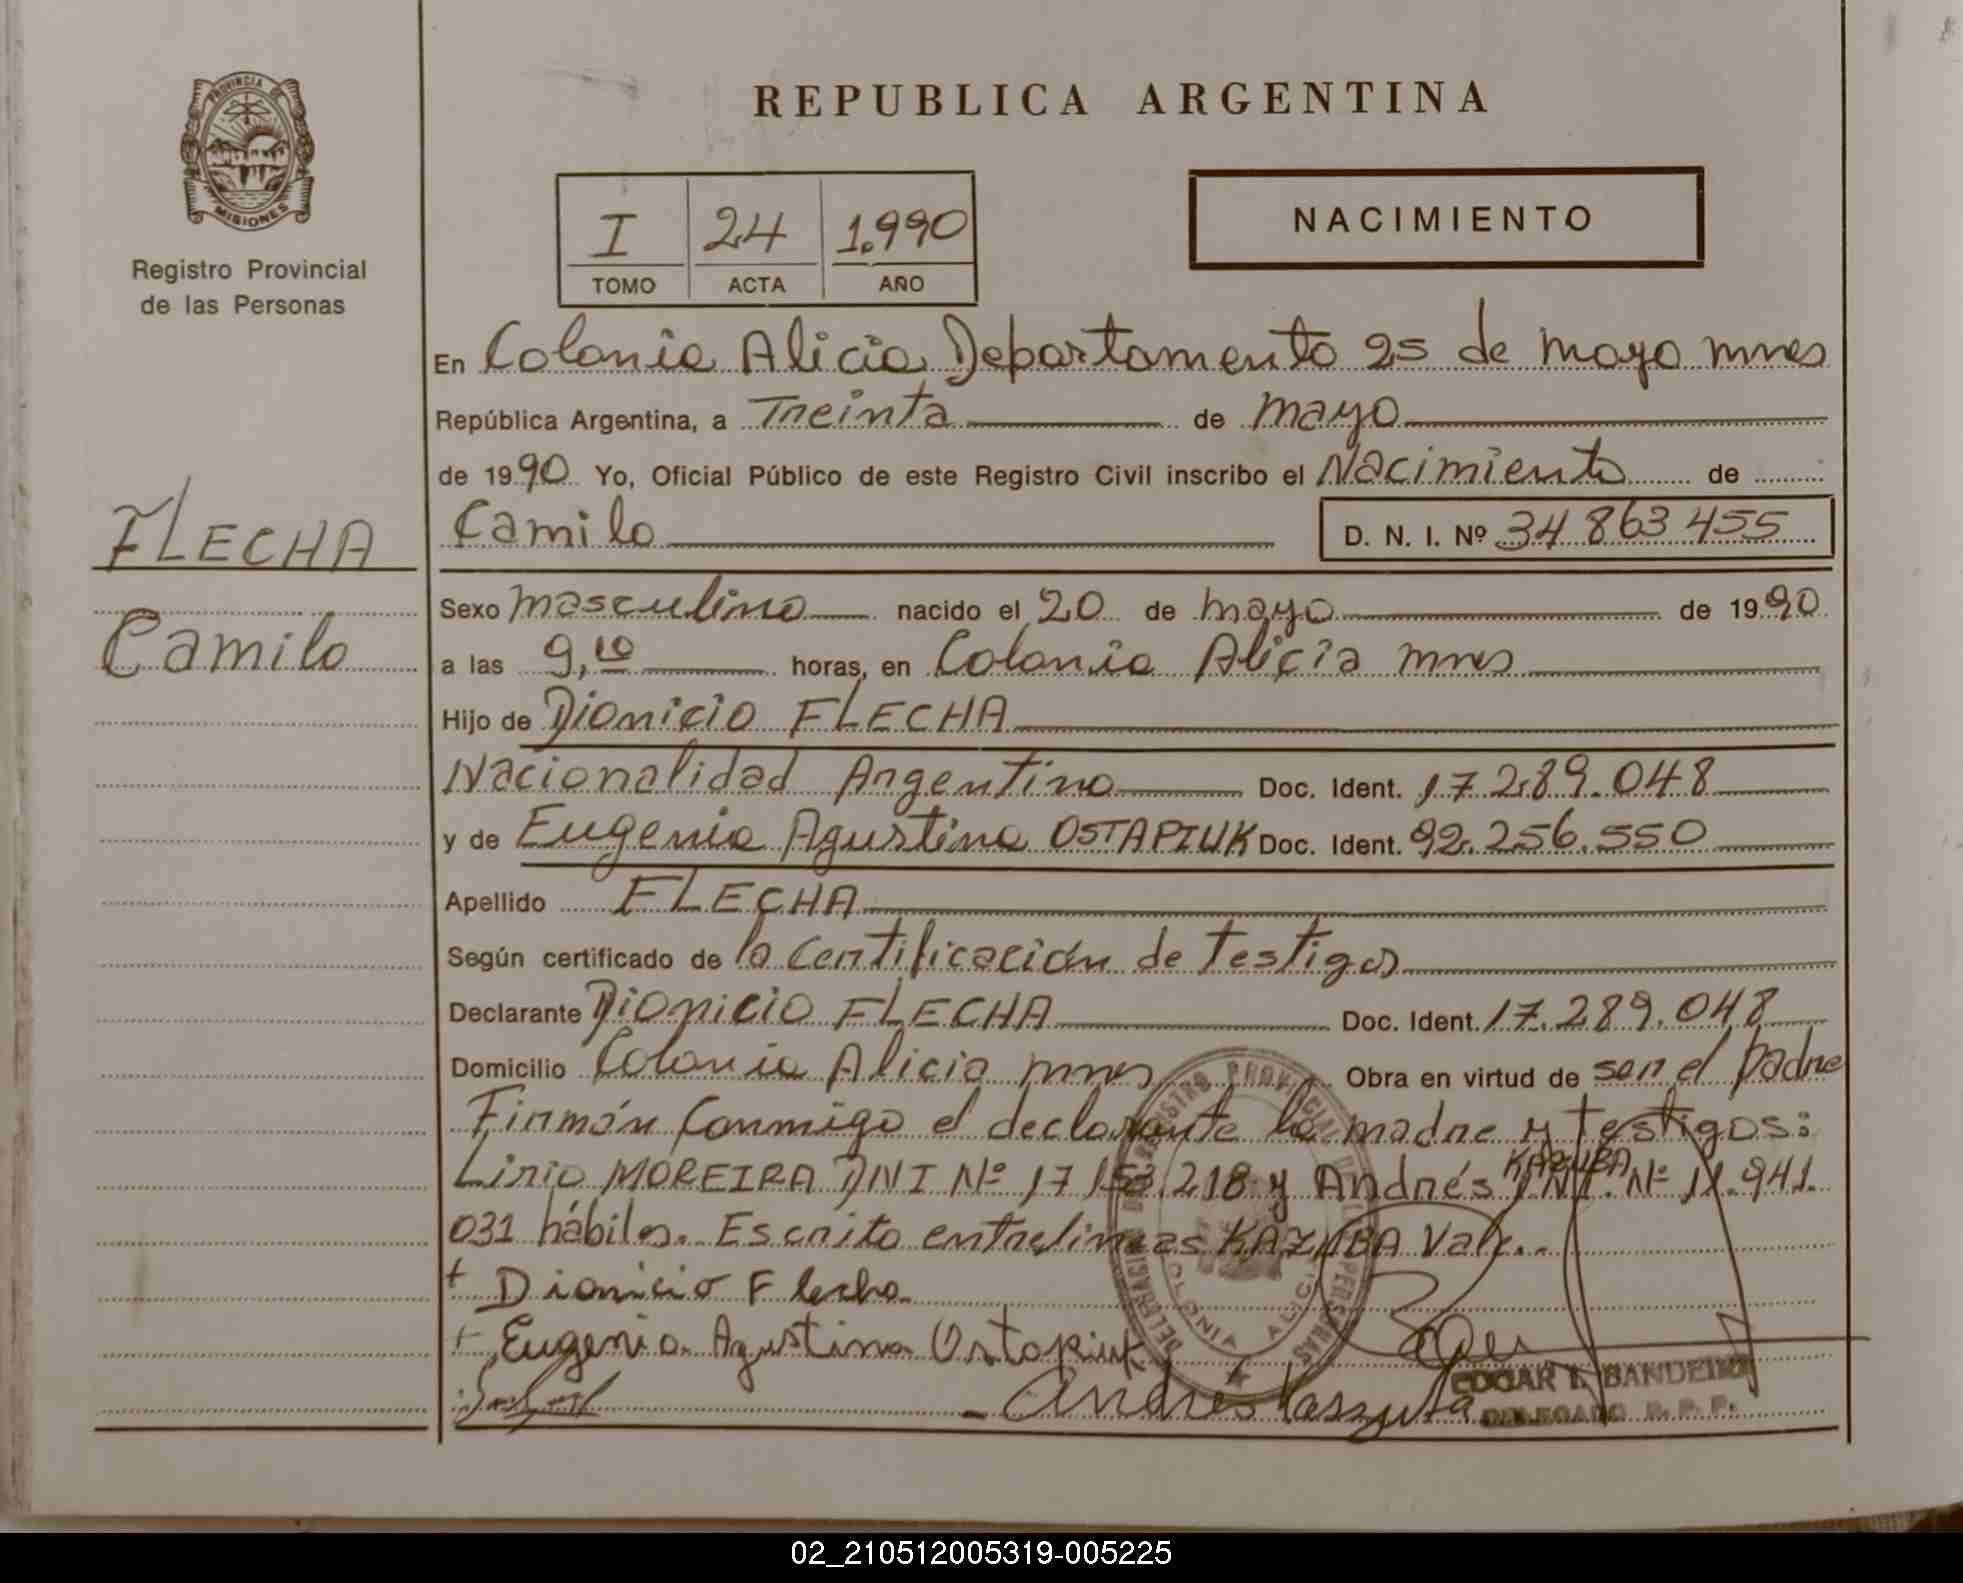 PROVINCIA DE
MISIONES
Registro Provincial
de las Personas
FLECHA
Camilo
REPUBLICA ARGENTINA
I 24 1.990
TOMO ACTA AÑO
NACIMIENTO
En Colonia Alicia Departamento 25 de mayo mnes
República Argentina, a Treinta de mayo
de 1990 Yo, Oficial Público de este Registro Civil inscribo el Nacimiento de
Camilo D. N. I. Nº 34 863 455
Sexo masculino nacido el 20 de mayo de 1990
a las 9,10 horas, en Colonia Alicia mnes
Hijo de Dionicio FLECHA
Nacionalidad Argentina Doc. Ident. 17.289.048
y de Eugenia Agustina OSTAPIUK Doc. Ident. 92.256.550
Apellido FLECHA
Según certificado de la Certificación de Testigos
Declarante Dionicio FLECHA Doc. Ident. 17.289.048
Domicilio Colonia Alicia mnes Obra en virtud de ser el padre
Firmán Conmigo el declarante la madre y testigos:
KAZUBA
Lirio MOREIRA DNI Nº 17 153.218 y Andrés DNI. Nº 11.941.
031 hábiles. Escrito entrelineas KAZUBA Vale..
+ Dionicio Flecha
+ Eugenia Agustina Ostapiuk
DELEGACION DEL REGISTRO PROVINCIAL DE LAS PERSONAS
COLONIA ALICIA
EDGAR I. BANDEIRA
DELEGADO R. P. P.
02_210512005319-005225